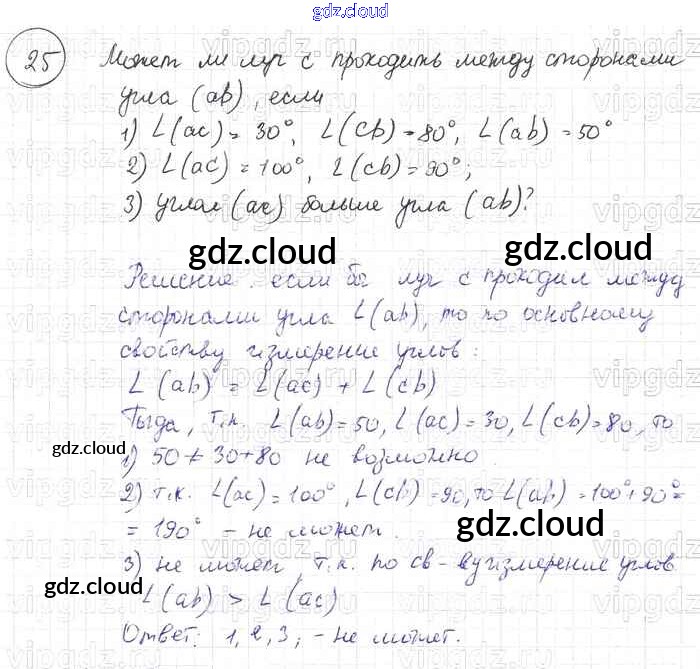 gdz.cloud
25 Может ли луч c проходить между сторонами
угла (ab), если
1) L(ac) = 30°, L(cb) = 80°, L(ab) = 50°
2) L(ac) = 100°, L(cb) = 90°;
3) угла (ac) больше угла (ab)?
gdz.cloud gdz.cloud
Решение: если бы луч c проходил между
сторонами угла L(ab), то по основному
свойству измерение углов:
L (ab) = L(ac) + L(cb)
Тогда, т.к. L(ab)=50, L(ac)=30, L(cb)=80, то
gdz.cloud
1) 50 ≠ 30+80 не возможно.
2) т.к. L(ac)=100°, L(cb)=90, то L(ab)=100°+90°=
= 190° - не может.
gdz.cloud
3) не может, т.к. по св-ву измерение углов
gdz.cloud
L(ab) > L(ac)
Ответ: 1, 2, 3; - не может.